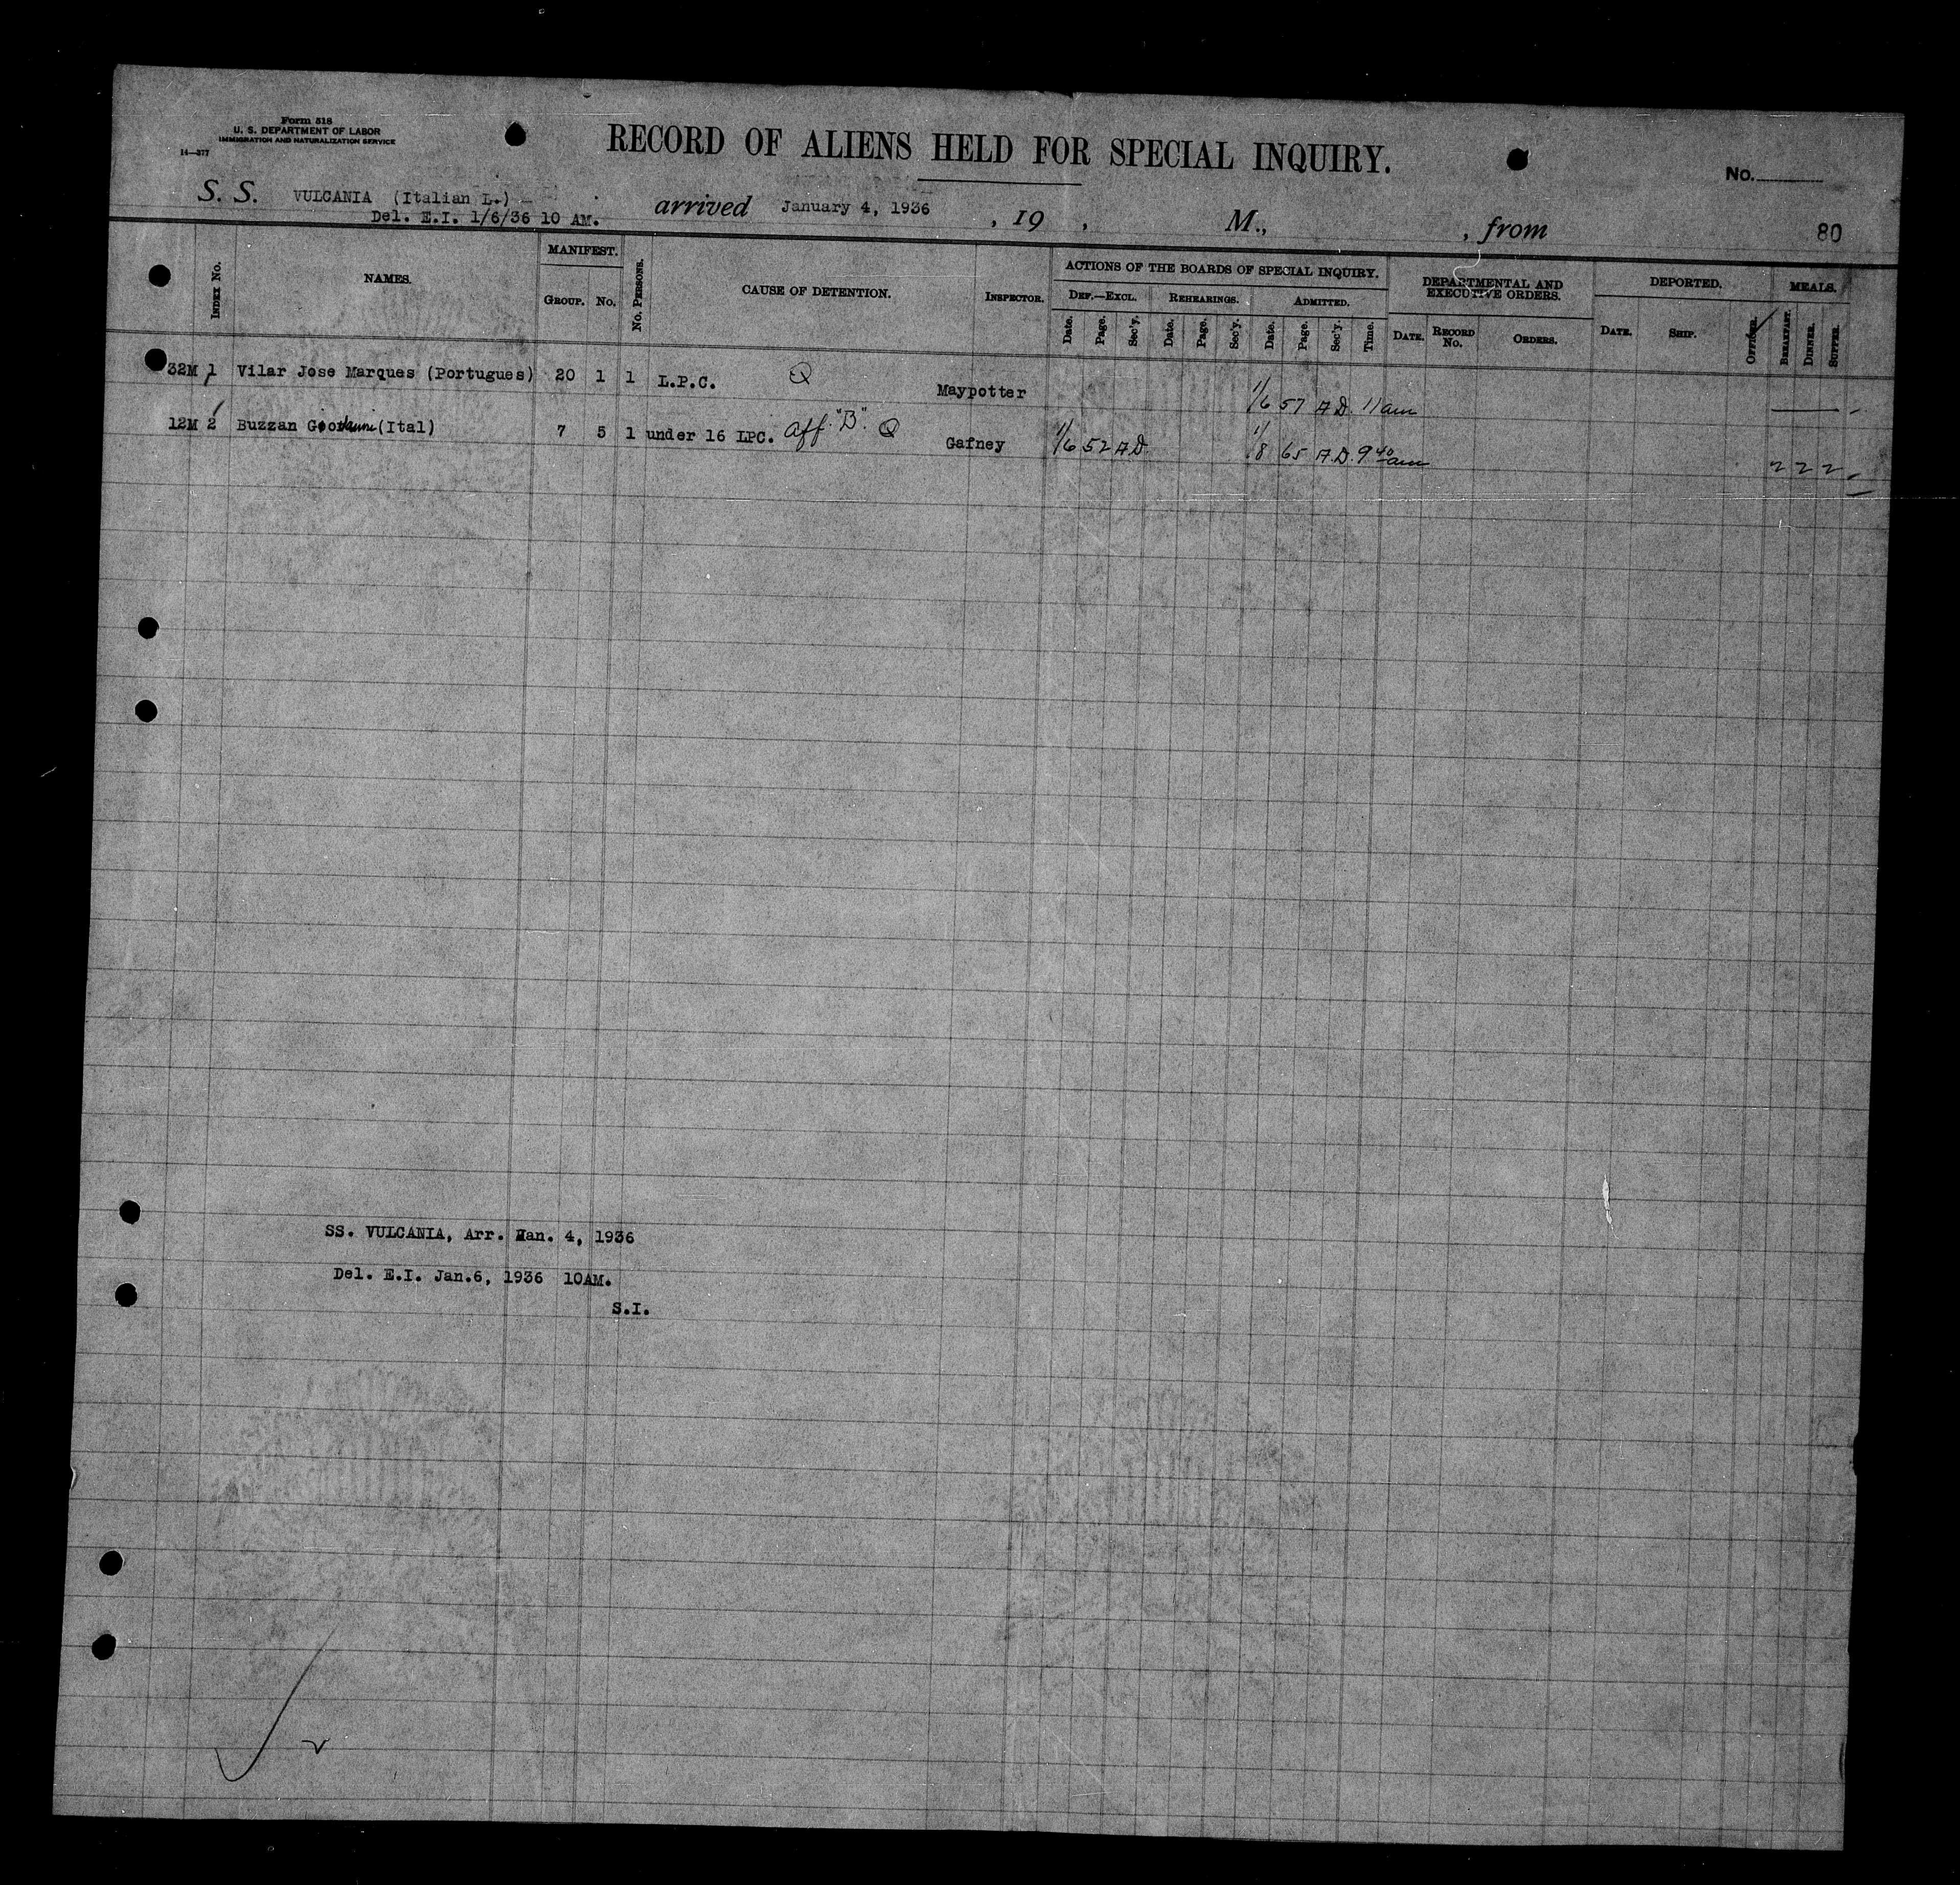 Form 518
U. S. DEPARTMENT OF LABOR
IMMIGRATION AND NATURALIZATION SERVICE
14—377
RECORD OF ALIENS HELD FOR SPECIAL INQUIRY.
No.
S. S. VULCANIA (Italian L.) arrived January 4, 1936 , 19 , M., , from 80
Del. E.I. 1/6/36 10 AM.
INDEX NO. NAMES. MANIFEST. GROUP. NO. NO. PERSONS. CAUSE OF DETENTION. INSPECTOR. ACTIONS OF THE BOARDS OF SPECIAL INQUIRY. DEPARTMENTAL AND EXECUTIVE ORDERS. DEPORTED. MEALS.
DEF.—EXCL. REHEARINGS. ADMITTED.
Date. Page. Sec'y. Date. Page. Sec'y. Date. Page. Sec'y. Time. DATE. RECORD NO. ORDERS. DATE. SHIP. OFFICER. BREAKFAST. DINNER. SUPPER.
32M 1 Vilar Jose Marques (Portugues) 20 1 1 L.P.C. Q Maypotter 1/6 57 A.D. 11 am
12M 2 Buzzan Giovanni (Ital) 7 5 1 under 16 LPC. Aff. "B". Q Gafney 1/6 52 A.D. 1/8 65 A.D. 9 40 am 2 2 2
SS. VULCANIA, Arr. Han. 4, 1936
Del. E.I. Jan.6, 1936 10AM.
S.I.